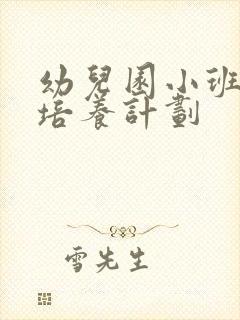 幼兒園小班
培養計劃
雪先生